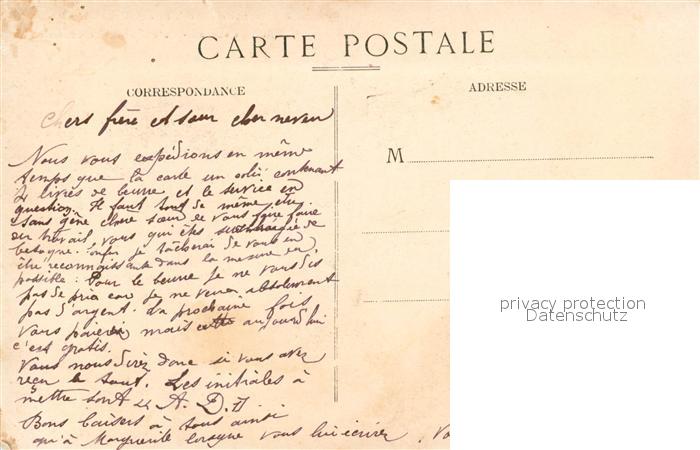 CARTE POSTALE
CORRESPONDANCE
ADRESSE
Chers frère et sœur cher neveu
Nous vous expédions en même
temps que la carte un colis contenant
livres de beurre et le service en
question. Il faut tout de même être
sans gêne chere sœur de vous faire faire
du travail, vous qui êtes surchargée de
besogne. enfin je tâcherai de vous en
être reconnaissante dans la mesure du
possible : Pour le beurre je ne vous dis
pas de prix car je ne veux absolument
pas d'argent. La prochaine fois
vous paierez mais cette aujourd'hui
c'est gratis.
Vous nous direz donc si vous avez
reçu le tout. Les initiales à
mettre sont A. D.
Bons baisers à tous ainsi
qu'à Marguerite lorsque vous lui écrirez. Vo
M
privacy protection
Datenschutz